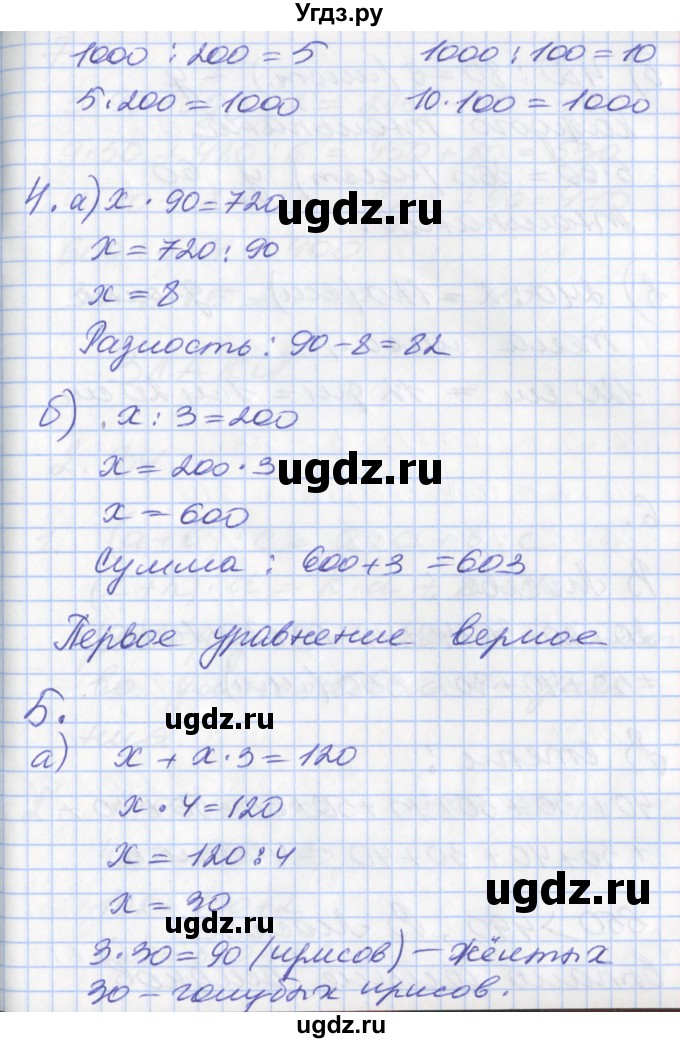 Угдз.ру
1000 : 200 = 5    1000 : 100 = 10
5 · 200 = 1000    10 · 100 = 1000
4. а) x · 90 = 720
ugdz.ru
x = 720 : 90
x = 8
Разность : 90 - 8 = 82
б) x : 3 = 200
x = 200 · 3
ugdz.ru
x = 600
Сумма : 600 + 3 = 603
Первое уравнение верное
5.
ugdz.ru
а) x + x · 3 = 120
x · 4 = 120
x = 120 : 4
ugdz.ru
x = 30
ugdz.ru
3 · 30 = 90 (ирисов) – жёлтых
30 – голубых ирисов.
ugdz.ru